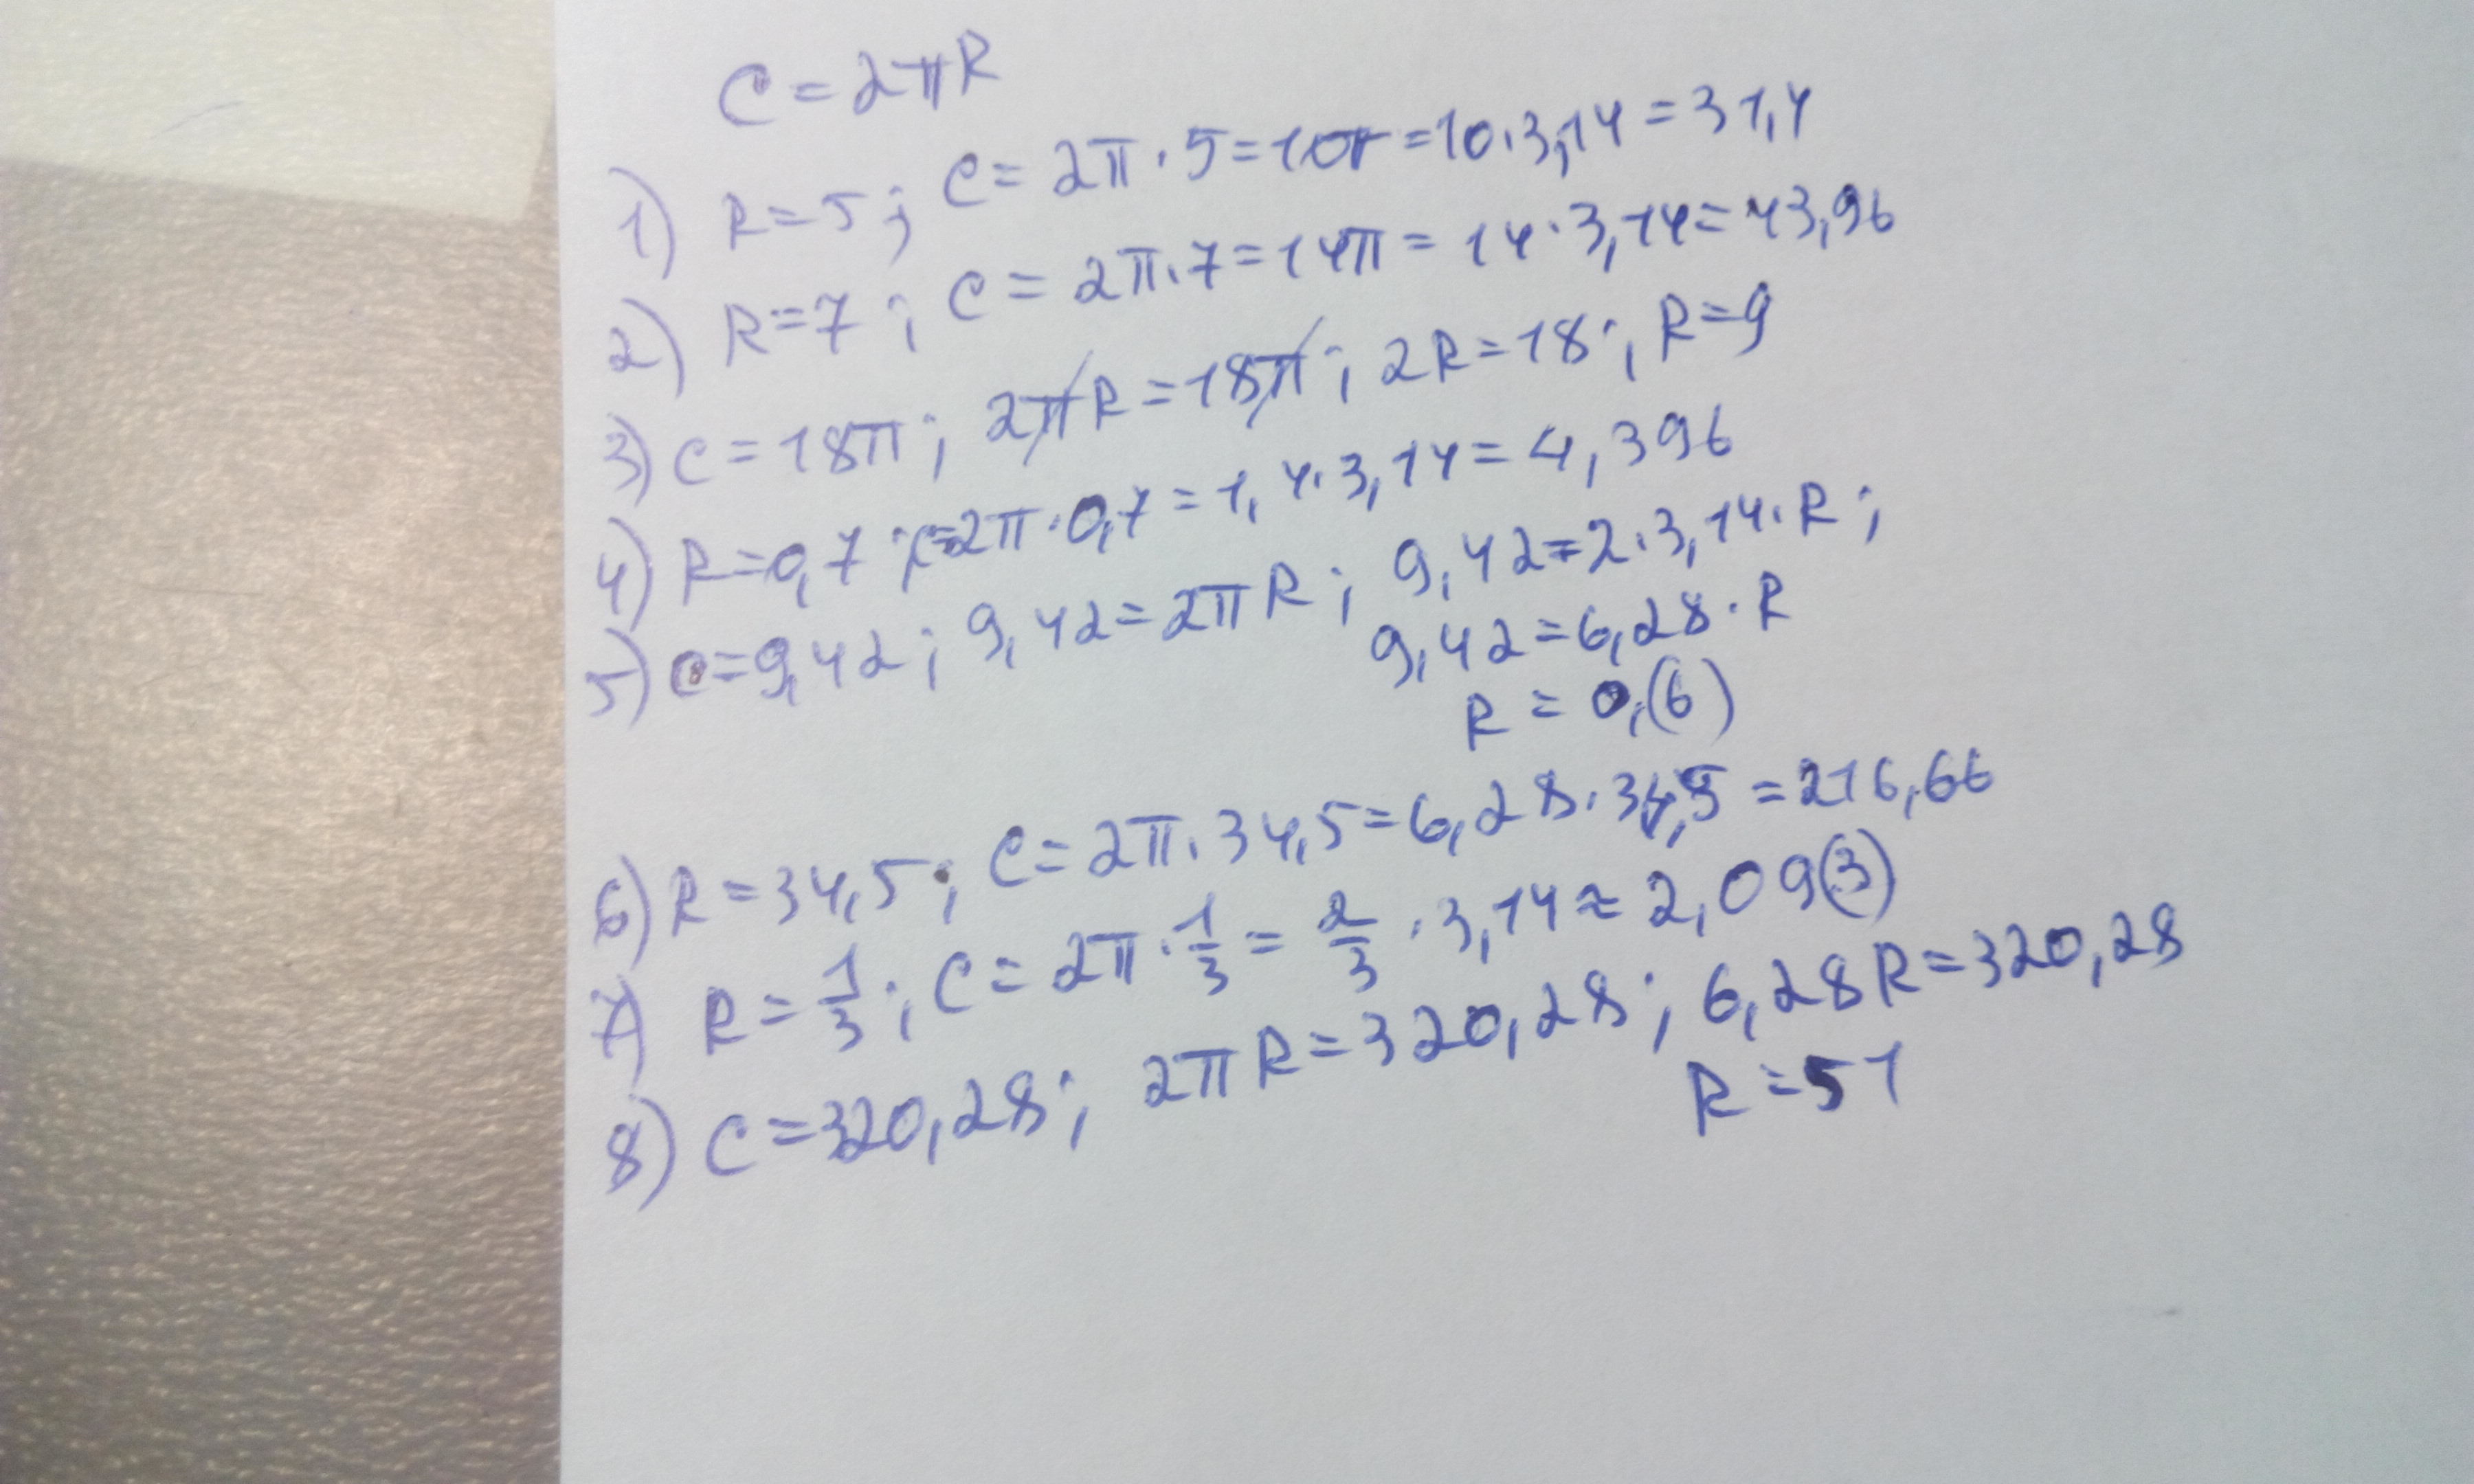 C = 2πR
1) R = 5; C = 2π · 5 = 10π = 10 · 3,14 = 31,4
2) R = 7; C = 2π · 7 = 14π = 14 · 3,14 = 43,96
3) C = 18π; 2πR = 18π; 2R = 18; R = 9
4) R = 0,7; C = 2π · 0,7 = 1,4 · 3,14 = 4,396
5) C = 9,42; 9,42 = 2πR; 9,42 = 2 · 3,14 · R;
9,42 = 6,28 · R
R = 0,(6)
6) R = 34,5; C = 2π · 34,5 = 6,28 · 34,5 = 216,66
7) R = 1/3; C = 2π · 1/3 = 2/3 · 3,14 ≈ 2,09(3)
8) C = 320,28; 2πR = 320,28; 6,28R = 320,28
R = 51